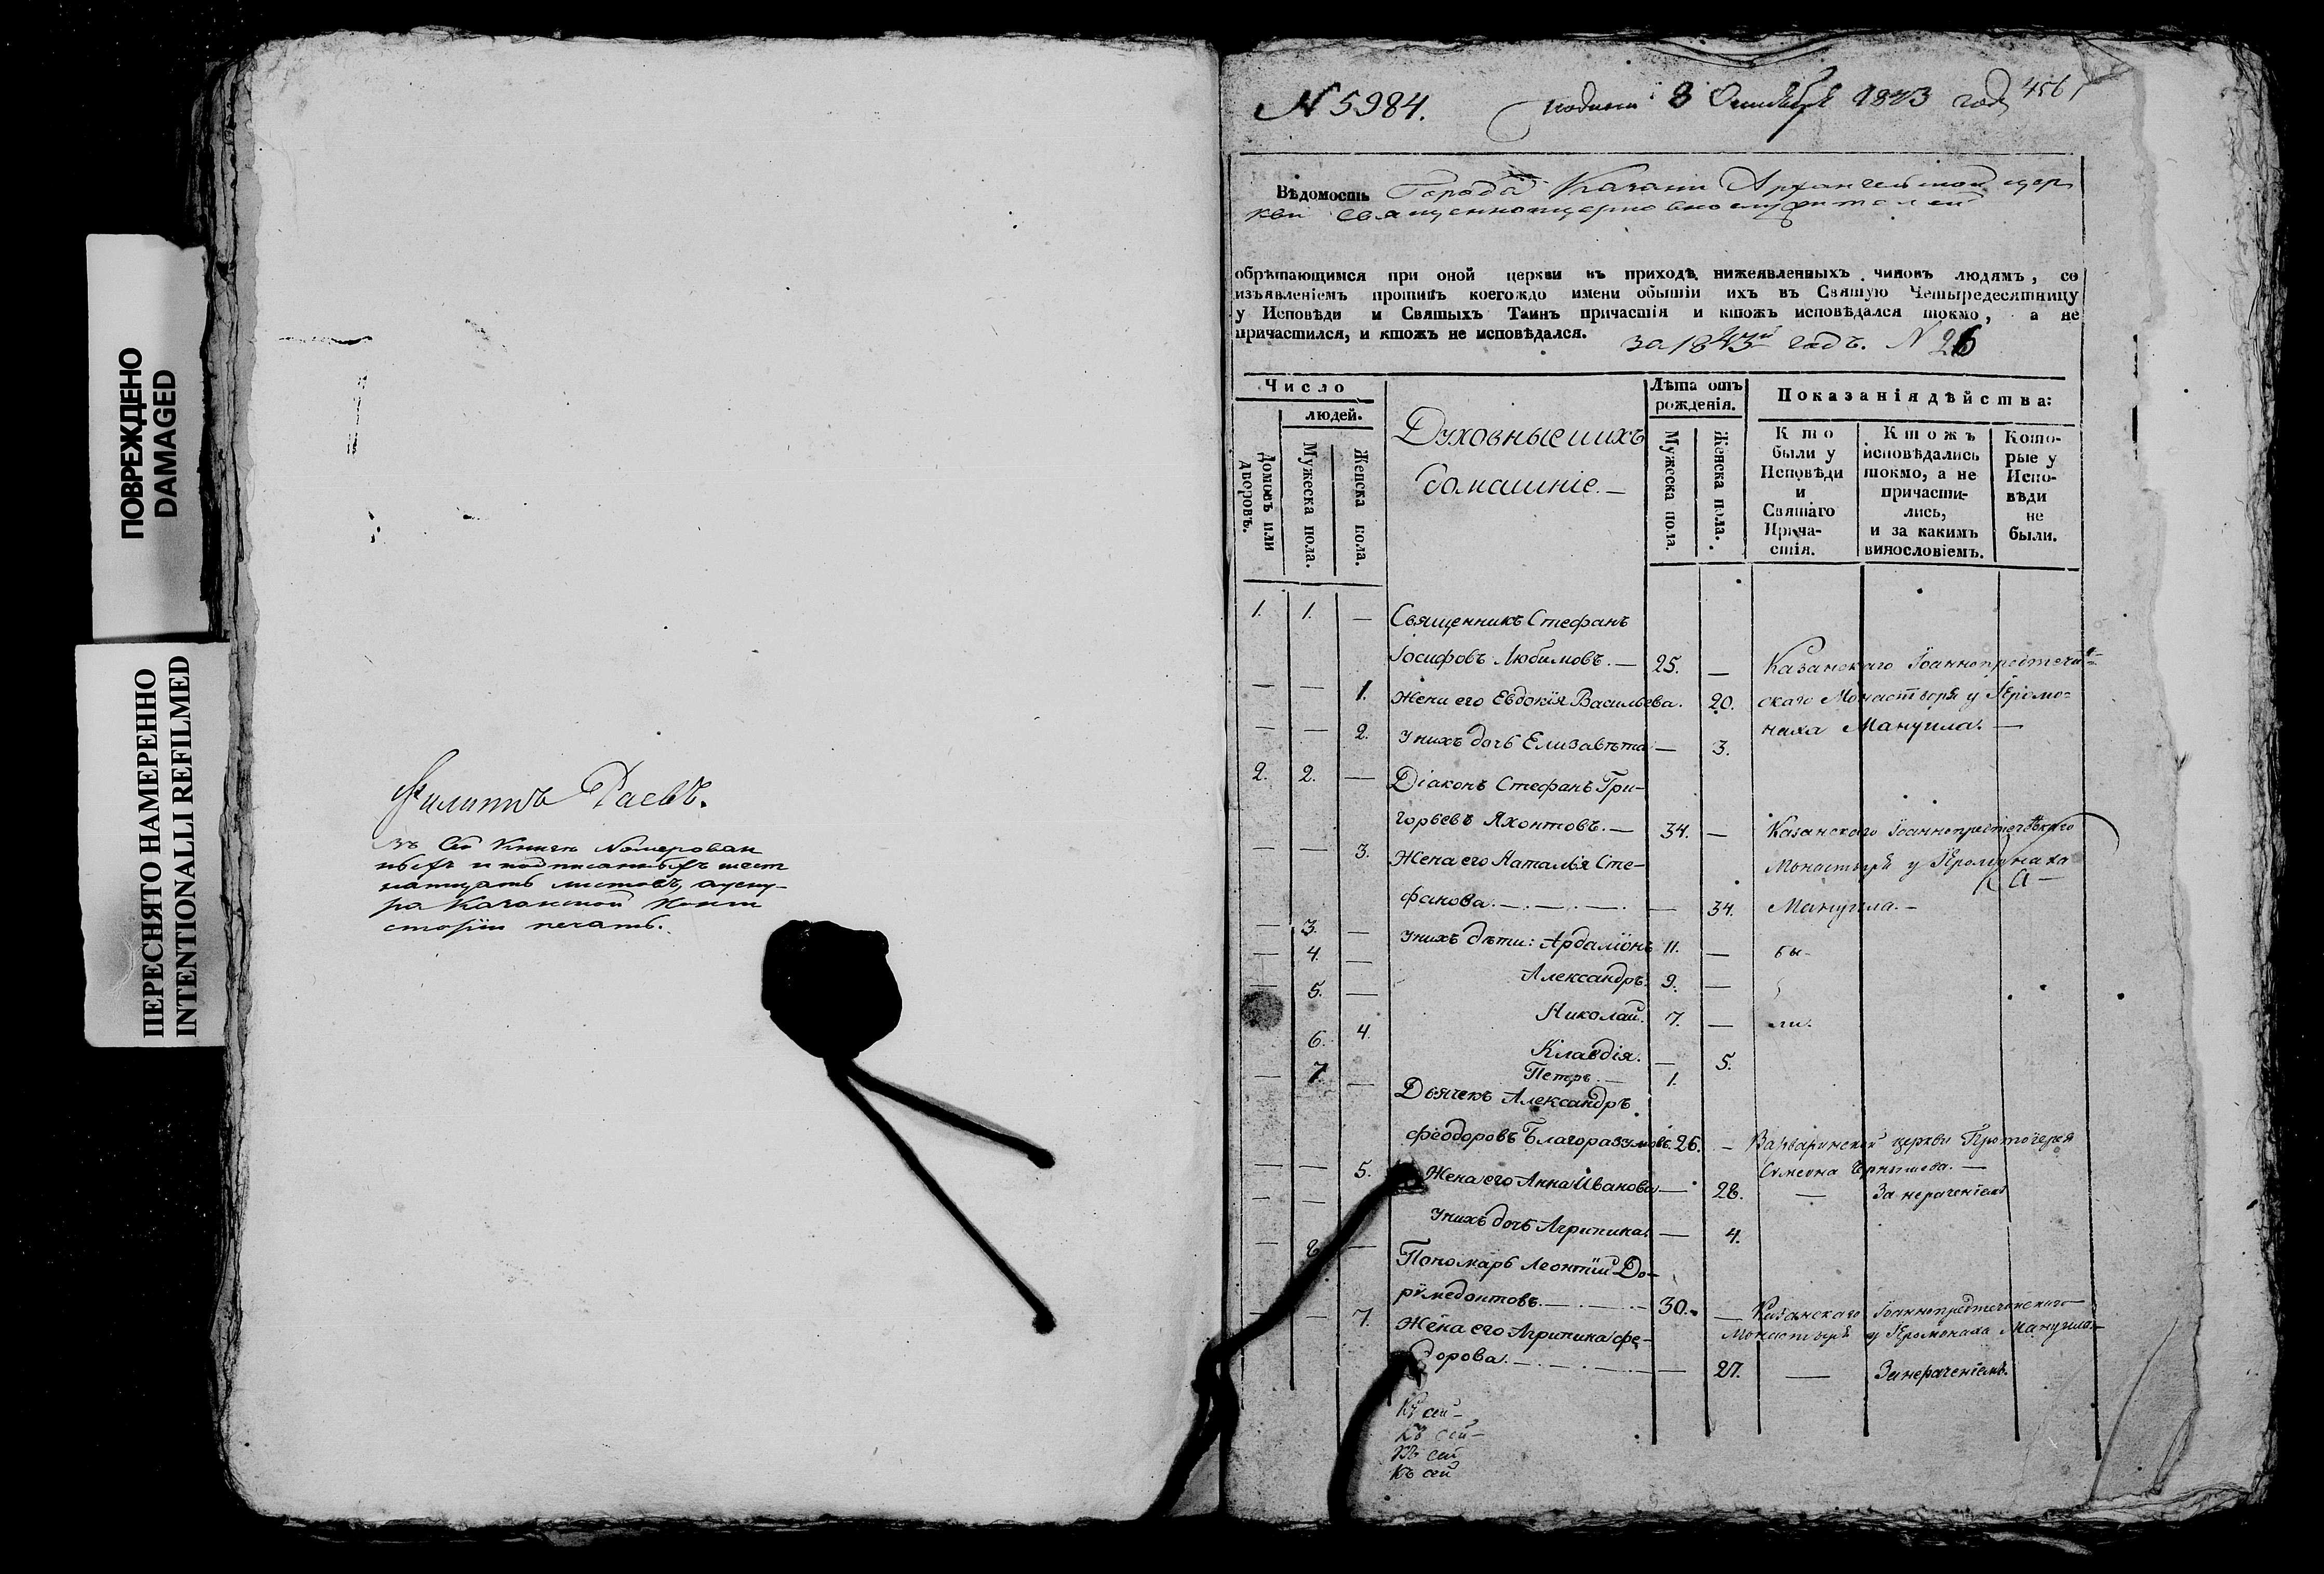 ПОВРЕЖДЕНО
DAMAGED
ПЕРЕСНЯТО НАМЕРЕННО
INTENTIONALLI REFILMED
Филиппъ
Въ сей книгѣ Номерован
ныхъ и подписанныхъ шест
натцать листовъ, а у сну-
ра Казанской Конси
сторiи печать.
N 5984. Подана 8 Октября 1843 года 456
Вѣдомость Города Казани Архангельской цер
кви священноцерковнослужителей
обрѣтающимся при оной церкви въ приходѣ нижеявленныхъ чиновъ людямъ, со
изъявленiемъ противъ коегождо имени обытiи ихъ въ Святую Четыредесятницу
у Исповѣди и Святыхъ Таинъ причастiя и ктожъ исповѣдался токмо, а не
причастился, и ктожъ не исповѣдался. за 1843й годъ. N 26
Число
людей.
Домовъ или дворовъ.
Мужеска пола.
Женска пола.
Духовные и ихъ
домашнiе.—
Лѣта отъ
рожденiя.
Мужеска пола.
Женска пола.
Показанiя дѣйства:
Кто
были у
Исповѣди
и
Святаго
Прича-
стiя.
Ктожъ
исповѣдались
токмо, а не
причасти-
лись,
и за какимъ
винословiемъ.
Кото-
рые у
Испо-
вѣди
не
были.
1. 1. — Священникъ Стефанъ
Iосифовъ Любимовъ.— 25. — Казанскаго Iоаннопредтечен-
— — 1. Жена его Евдокiя Васильева. 20. скаго Монастыря у Iеромо-
наха Мануила.—
— — 2. У нихъ дочь Елизавѣта — 3.
2. 2. — Дiаконъ Стефанъ Гри-
горьевъ Яхонтовъ.— 34. — Казанскаго Iоаннопредтеченскаго
— — 3. Жена его Наталья Сте- Монастыря у Iеромонаха
фанова.— — 34. Мануила.—
— 3. — У нихъ дѣти: Ардалiонъ 11. — бы-
— 4. — Александръ. 9. —
— 5. — Николай. 7. — ли.
6. 4. Клавдiя. — 5.
— 7. — Петръ.— 1.
Дьячекъ Александръ
Феодоровъ Благоразумовъ. 26. — Варваринской церкви Протоiерея
Симеона
— — 5. Жена его Анна Иванова — 28. — За нераченiемъ
— — У нихъ дочь Агрипина. — 4.
— 8 — Пономарь Леонтiй До-
римедонтовъ.— 30. — Казанскаго Iоаннопредтеченскаго
Монастыря у Iеромонаха Мануила.—
— 7. Жена его Агрипина Фе-
дорова.— — 27. — За нераченiемъ.
Къ сей —
Къ сей —
Къ сей
Къ сей